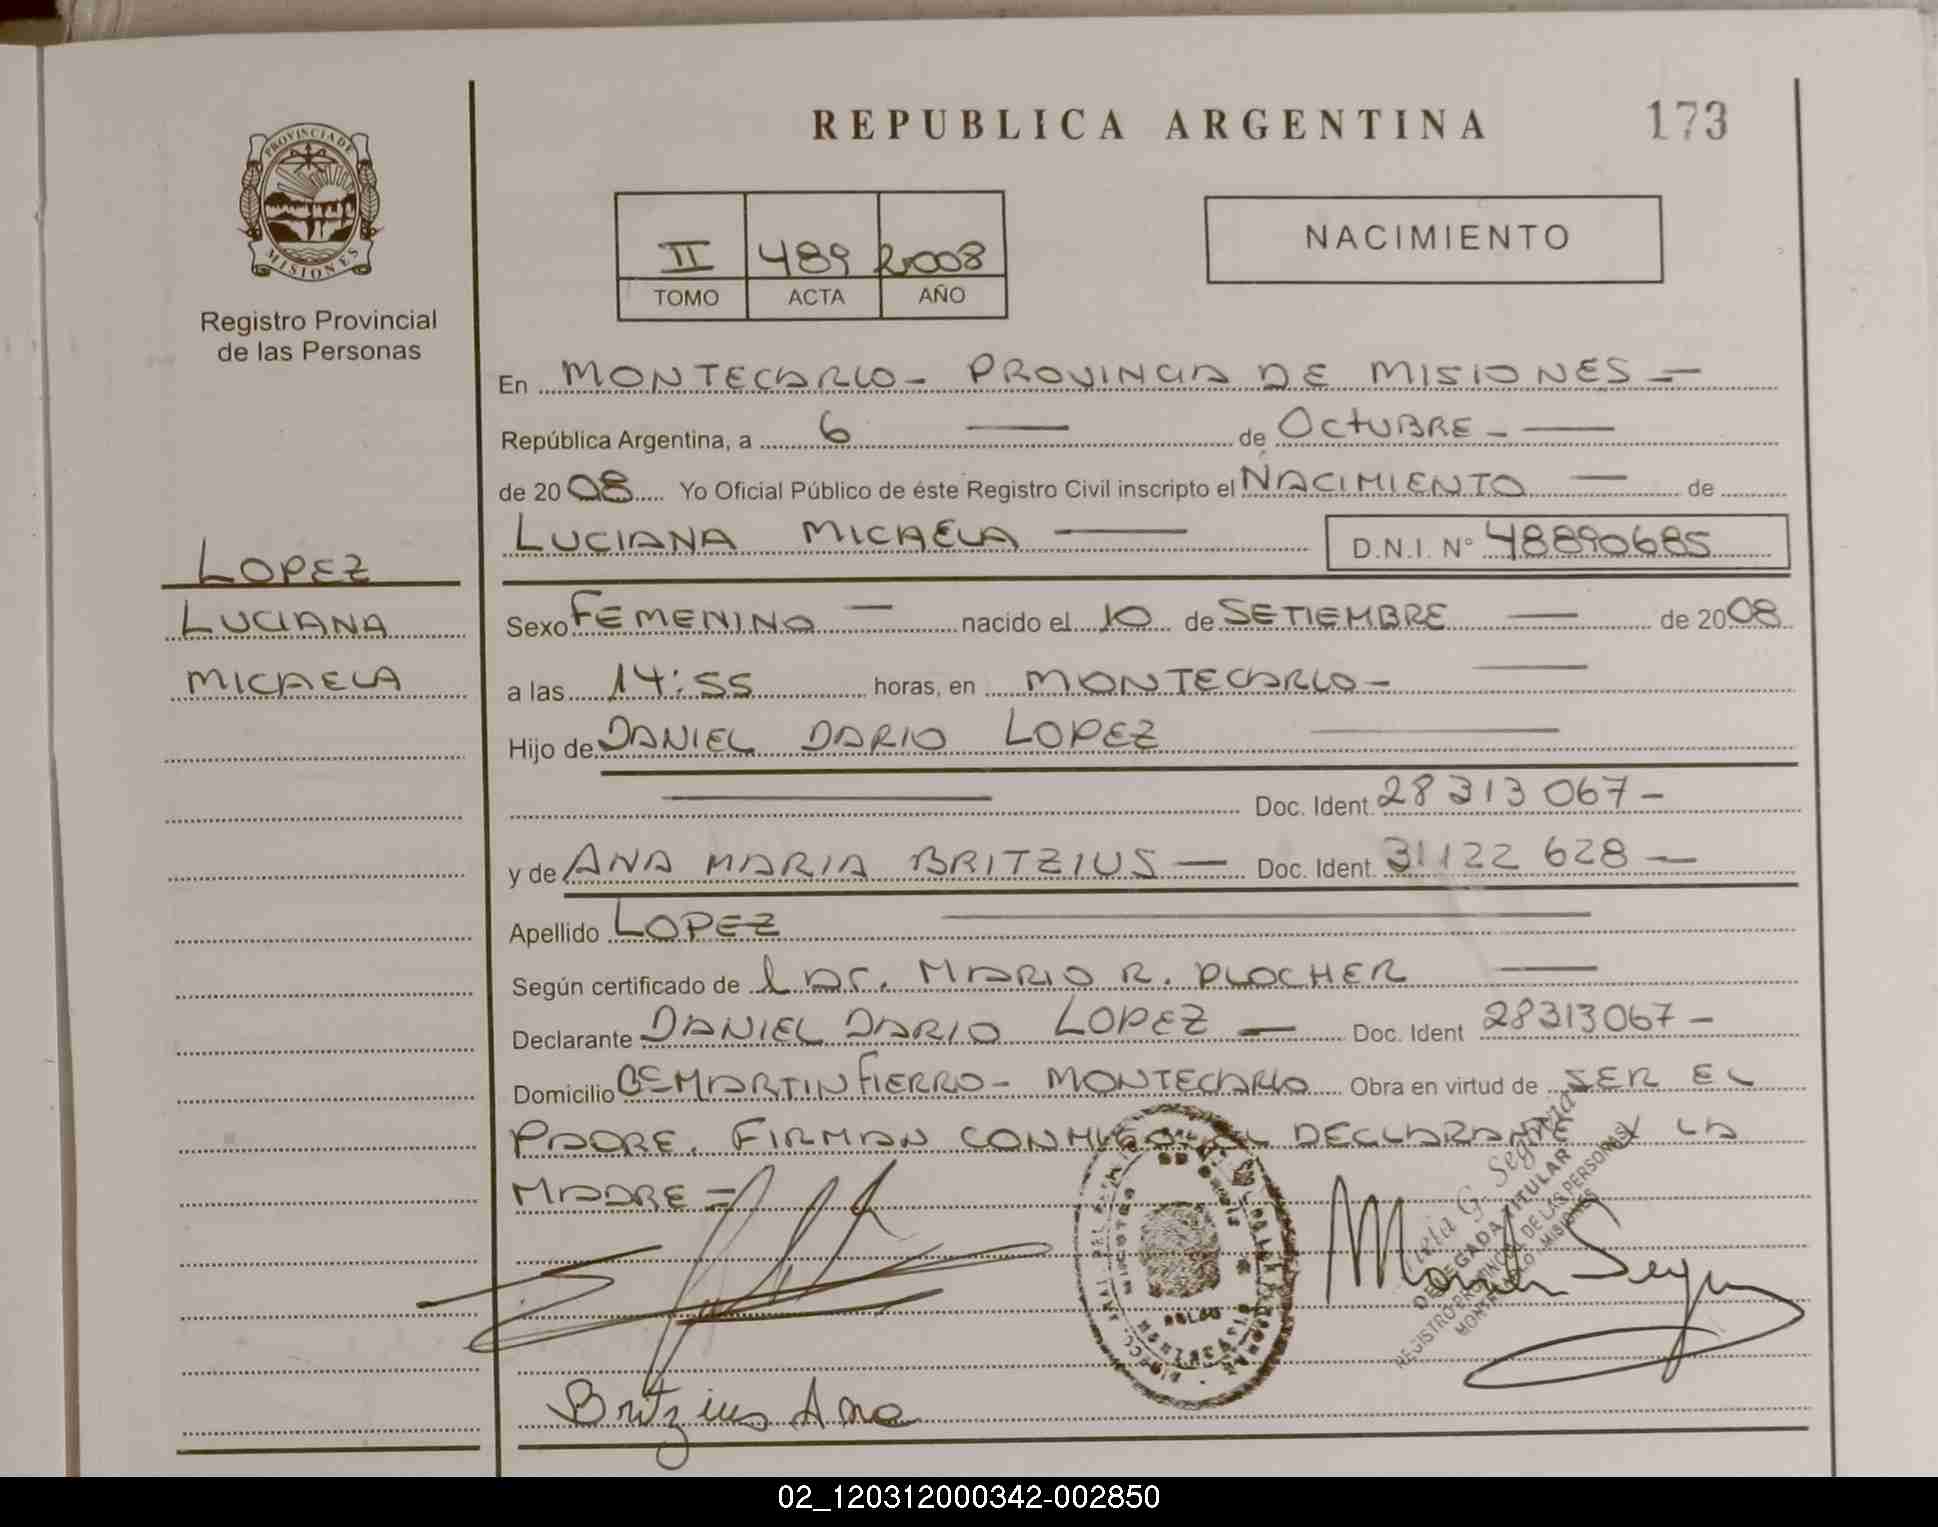 REPUBLICA ARGENTINA
173
PROVINCIA DE
MISIONES
Registro Provincial
de las Personas
II 489 2008
TOMO ACTA AÑO
NACIMIENTO
En MONTECARLO - PROVINCIA DE MISIONES -
República Argentina, a 6 — de OCTUBRE - —
de 2008 Yo Oficial Público de éste Registro Civil inscripto el NACIMIENTO — de
LUCIANA MICAELA — D.N.I. N° 48890685
LOPEZ
LUCIANA
MICAELA
Sexo FEMENINO — nacido el 10 de SETIEMBRE — de 2008
a las 14:55 horas, en MONTECARLO -
Hijo de DANIEL DARIO LOPEZ —
— Doc. Ident. 28 313 067 -
y de ANA MARIA BRITZIUS — Doc. Ident. 31122 628 —
Apellido LOPEZ —
Según certificado de l DR. MARIO R. PLOCHER —
Declarante DANIEL DARIO LOPEZ — Doc. Ident 28313067 -
Domicilio Bº MARTIN FIERRO - MONTECARLO Obra en virtud de SER EL
PADRE. FIRMAN CONMIGO EL DECLARANTE Y LA
MADRE =
DELEGADA TITULAR
REGISTRO PROVINCIAL DE LAS PERSONAS
MONTECARLO - MISIONES
Britzius Ana
02_120312000342-002850